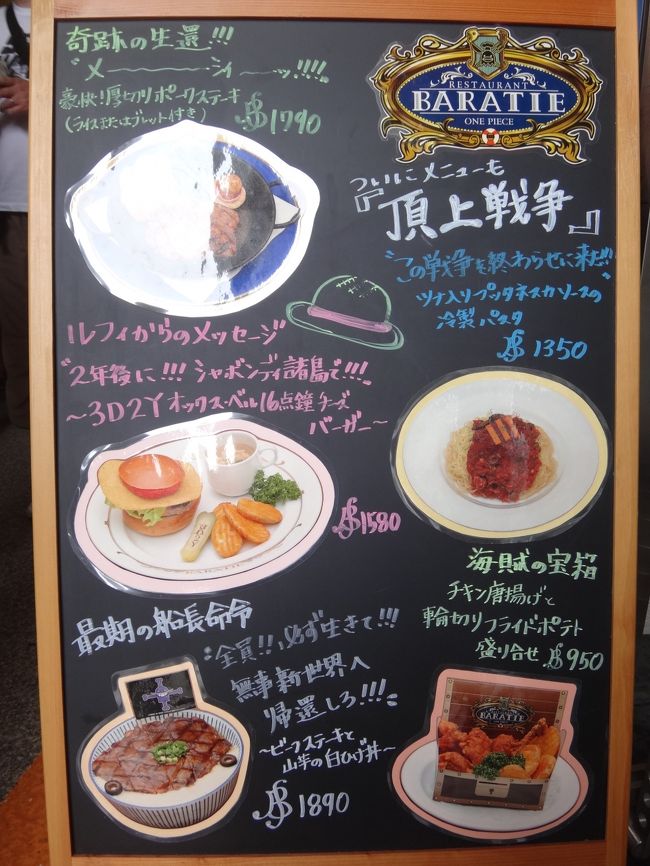 奇跡の生還!!!
"メ――――シィ――ッ!!!!
豪快!厚切りポークステーキ
(ライスまたはブレット付き) 1790
RESTAURANT
BARATIE
ONE PIECE
ついにメニューも
『頂上戦争』
"この戦争を終わらせに来た!!"
ツナ入りプッタネスカソースの
冷製パスタ
1350
ルフィからのメッセージ
"2年後に!!! シャボンディ諸島で!!!"
〜3D2Y オックス・ベル16点鐘チーズ
バーガー〜
1580
海賊の宝箱
チキン唐揚げと
輪切りフライドポテト
盛り合せ 950
BARATIE
最期の船長命令
"全員!!必ず生きて!!!
無事新世界へ
帰還しろ!!!"
〜ビーフステーキと
山芋の白ひげ丼〜
1890